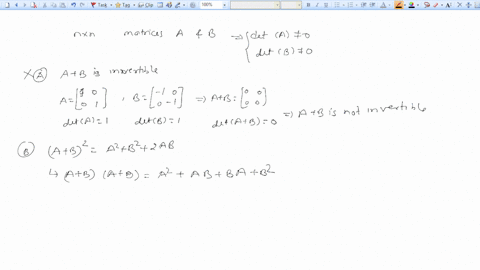 File Edit View Insert Actions Tools Help
100%
nxn matrices A & B ⇒ { det (A) ≠ 0
det (B) ≠ 0
X (A) A+B is invertible
A = [1 0 0 1] , B = [-1 0 0 -1] ⇒ A+B = [0 0 0 0]
det(A) = 1 det(B) = 1 det(A+B) = 0 ⇒ A+B is not invertible
(B) (A+B)² = A² + B² + 2AB
↳ (A+B) (A+B) = A² + AB + BA + B²